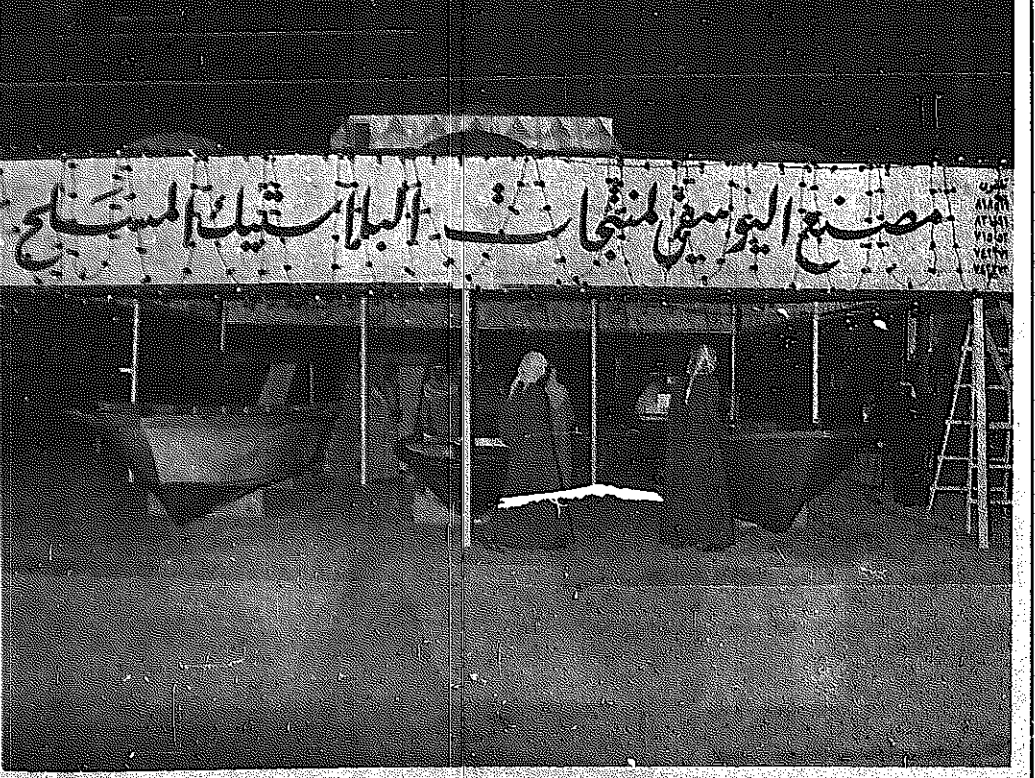 مصنع اليوسيفي لمنتجات البلاستيك المسلح
تلفون